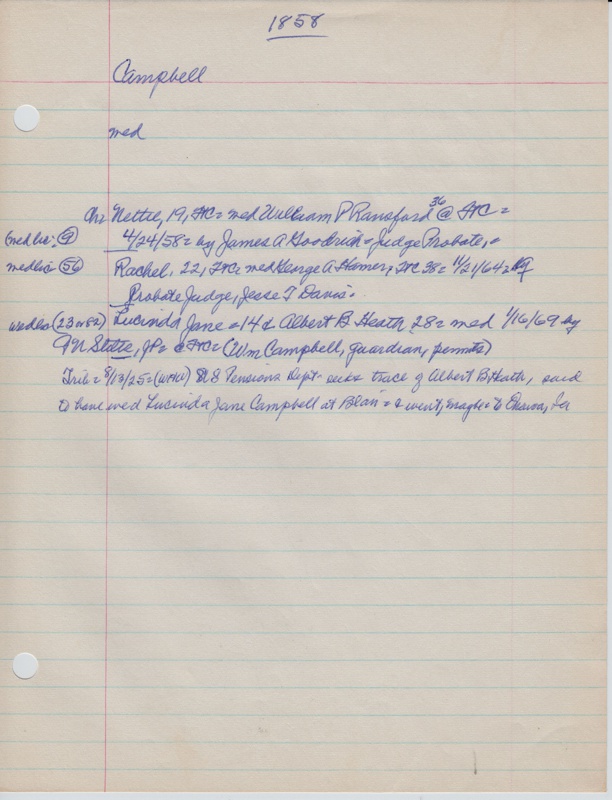 1858
Campbell
med
Ch= Nettie, 19, FtC= med William P Ransford 36 @ FtC=
(medlic: 9) 4/24/58= by James A Goodrich= Judge Probate,=
medlic 56 Rachel, 22, FtC= med George A Homer, FtC 38= 11/21/64= by
Probate Judge, Jesse T Davis.
wedlic (23 or 82) Lucinda Jane = 14 & Albert B Heath 28= med 1/16/69 by
JP= @ FtC= (Wm Campbell, guardian, permits)
Trib= 8/13/25= US Pensions Dept= seeks trace of Albert B Heath, said
to have wed Lucinda Jane Campbell at Blair= & went, maybe= to Onawa, Ia